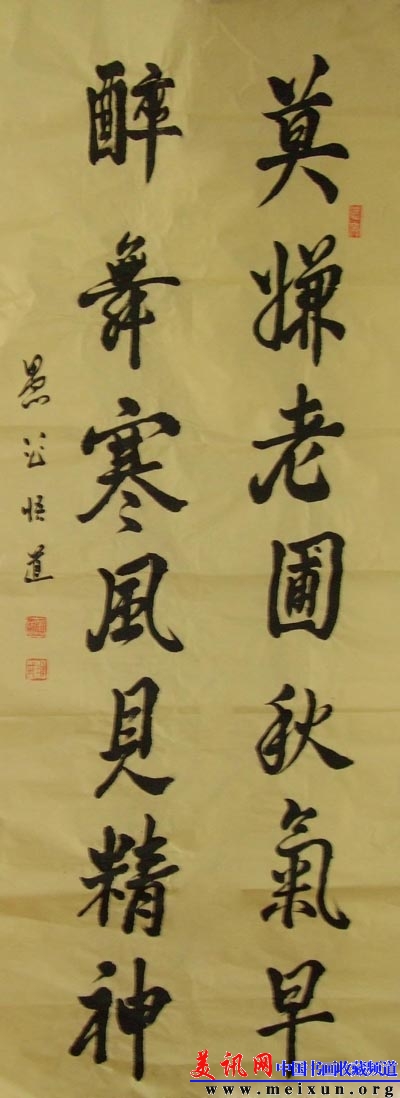 莫嫌老圃秋氣早
醉舞寒風見精神
愚公悟道
美讯网 中国书画收藏频道
www.meixun.org